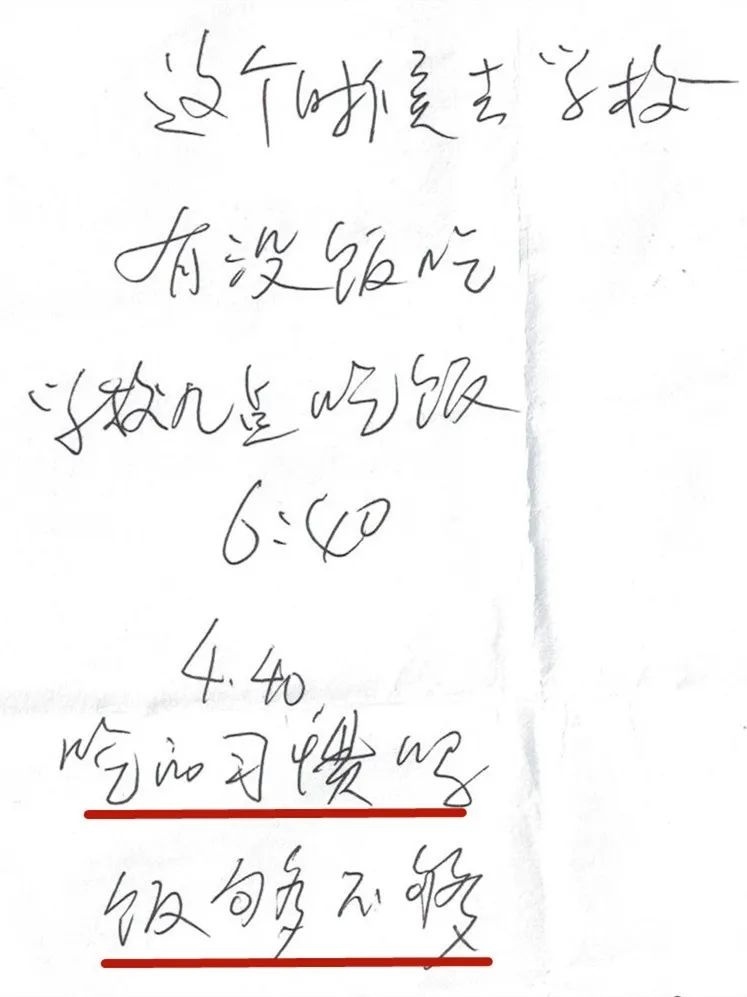 这个时候去学校
有没饭吃
学校几点吃饭
6:40
4.40
吃的习惯吗
饭够不够